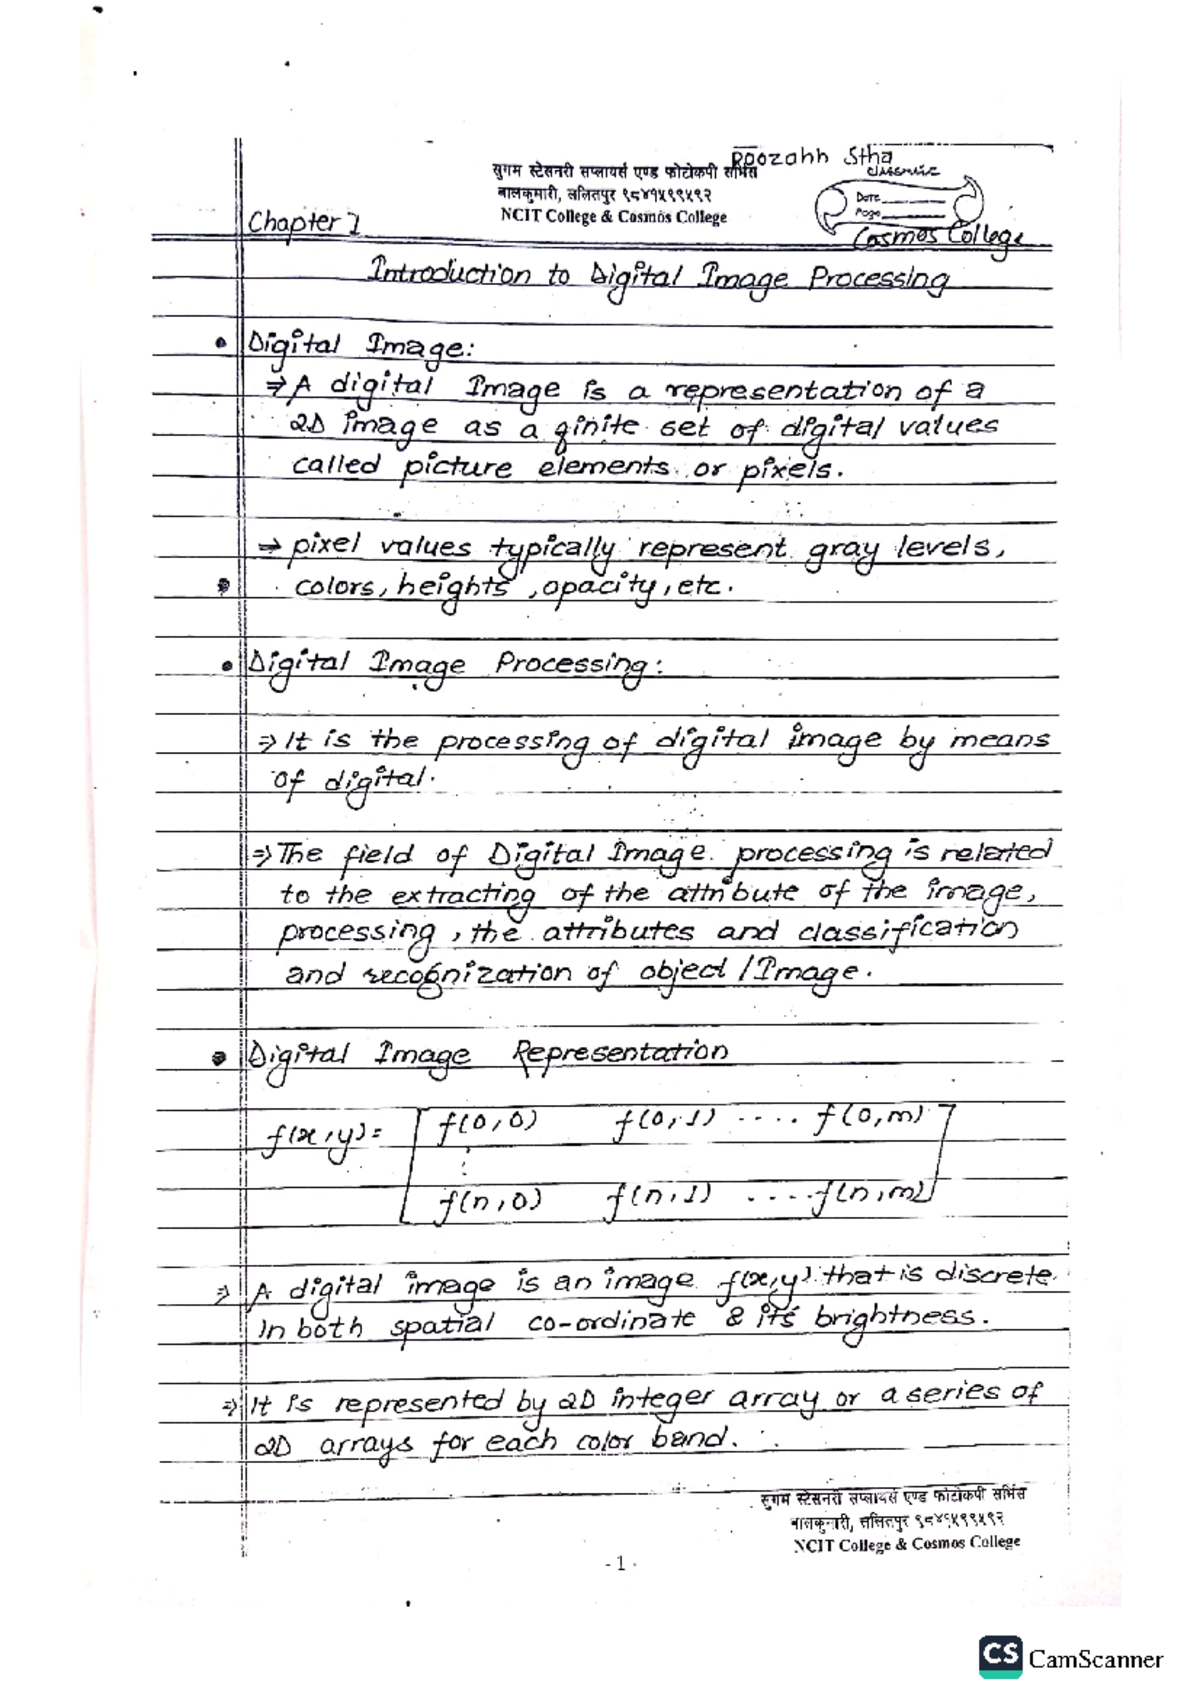 Roozahh Stha
सुगम स्टेसनरी सप्लायर्स एण्ड फोटोकपी सर्भिस
classmate
बालकुमारी, ललितपुर ९८४१५९९५९२
Date
Page
NCIT College & Cosmos College
Chapter 1
Cosmos College
Introduction to Digital Image Processing
• Digital Image:
⇒ A digital Image is a representation of a
2D image as a finite set of digital values
called picture elements or pixels.
→ pixel values typically represent gray levels,
colors, heights, opacity, etc.
• Digital Image Processing:
⇒ It is the processing of digital image by means
of digital.
⇒ The field of Digital Image processing is related
to the extracting of the attribute of the image,
processing, the attributes and classification
and recognization of object / Image.
• Digital Image Representation
f(x,y)= [ f(0,0) f(0,1) .... f(0,m) ]
⋮
f(n,0) f(n,1) .... f(n,m)
⇒ A digital image is an image f(x,y) that is discrete
in both spatial co-ordinate & its brightness.
⇒ It is represented by 2D integer array or a series of
2D arrays for each color band.
सुगम स्टेसनरी सप्लायर्स एण्ड फोटोकपी सर्भिस
बालकुमारी, ललितपुर ९८४१५९९५९२
NCIT College & Cosmos College
- 1 -
CS CamScanner